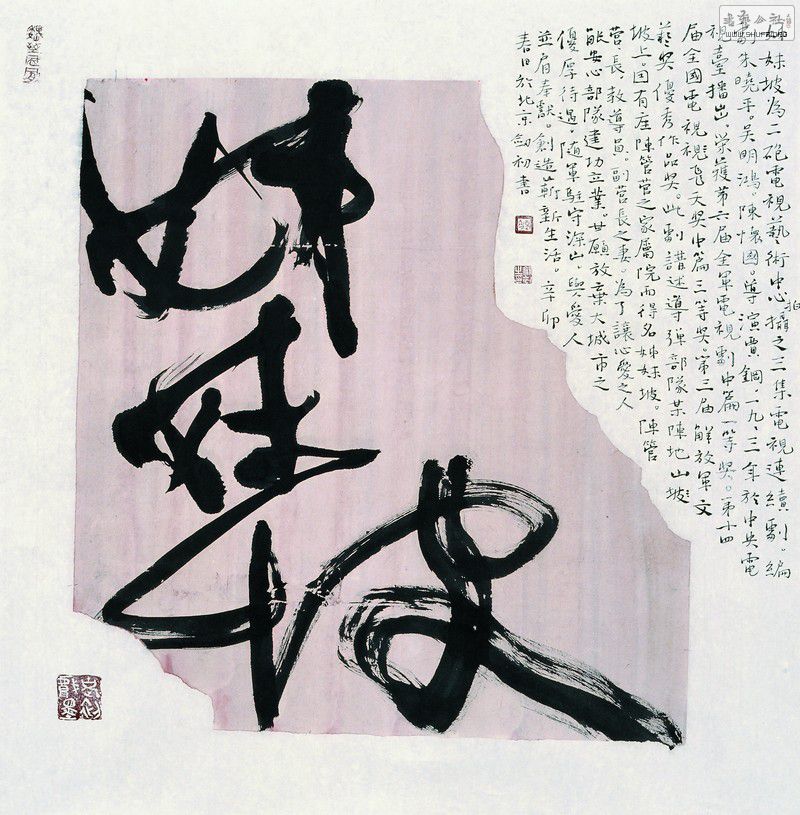 姊妹坡
妹坡為二砲電視藝術中心拍攝之三集電視連續劇。編
劇朱曉平。吳明鴻。陳懷國。導演賈鋼。一九、三年於中央電
視臺播出榮獲第六届全軍電視劇中篇一等獎。第十四
届全國電視飛天獎中篇三等獎。第三届解放軍文
藝獎優秀作品獎。此劇講述導彈部隊某陣地山坡
坡上。因有座陣管營之家屬院而得名姊妹坡。陣管
營長教導員。副營長之妻。為了讓心愛之人
能安心部隊建功立業。甘願放棄大城市之
優厚待遇。隨軍駐守深山。與愛人
並肩奉獻。創造嶄新生活。辛卯
春日於北京劍初書
WWW.SHUFA.ORG